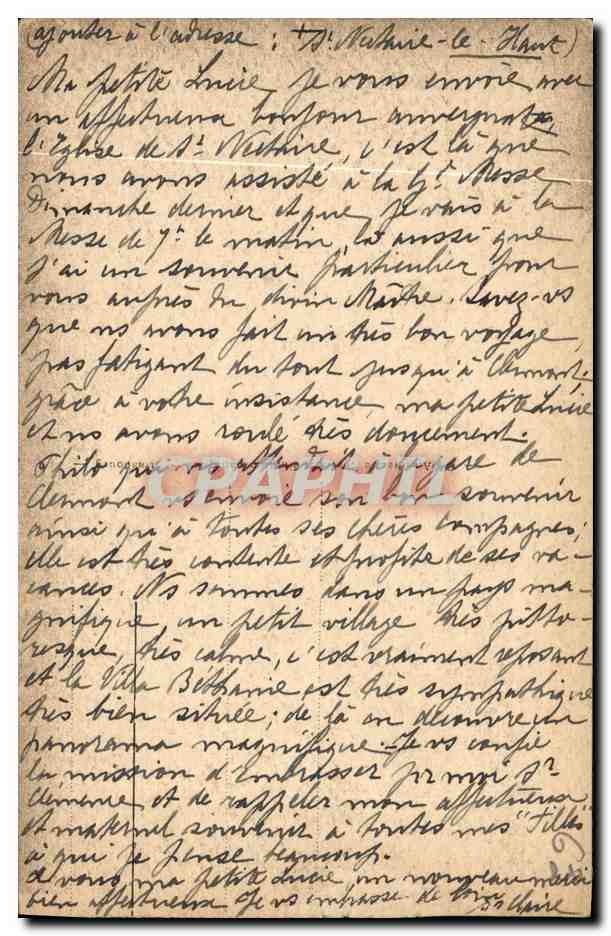 (ajouter à l'adresse : St Nectaire-le-Haut)
Ma petite Lucie, je vous envoie avec
un affectueux bonjour auvergnat
l'Eglise de St Nectaire, c'est là que
nous avons assisté à la Gd Messe
Dimanche dernier et que je vais à la
Messe de 7h le matin, là aussi que
j'ai un souvenir particulier pour
vous auprès du divin Maître. Savez-vs
que ns avons fait un très bon voyage
pas fatigant du tout jusqu'à Clermont,
grâce à votre insistance, ma petite Lucie
et ns avons roulé très doucement.
qui ns attendait à la gare de
Clermont vs envoie son bon souvenir
ainsi qu'à toutes ses chères compagnes;
elle est très contente et profite de ses va-
cances. Ns sommes dans un pays ma-
gnifique, un petit village très pitto-
resque, très calme, c'est vraiment reposant
et la Villa Béthanie est très sympathique
très bien située; de là on découvre un
panorama magnifique. Je vs confie
la mission d'embrasser pr moi Sr
Clémence et de rappeler mon affectueux
et maternel souvenir à toutes mes "Filles"
à qui je pense beaucoup.
A vous, ma petite Lucie, un nouveau merci
bien affectueux. Je vs embrasse de loin
Sr Claire
CPAPHIL